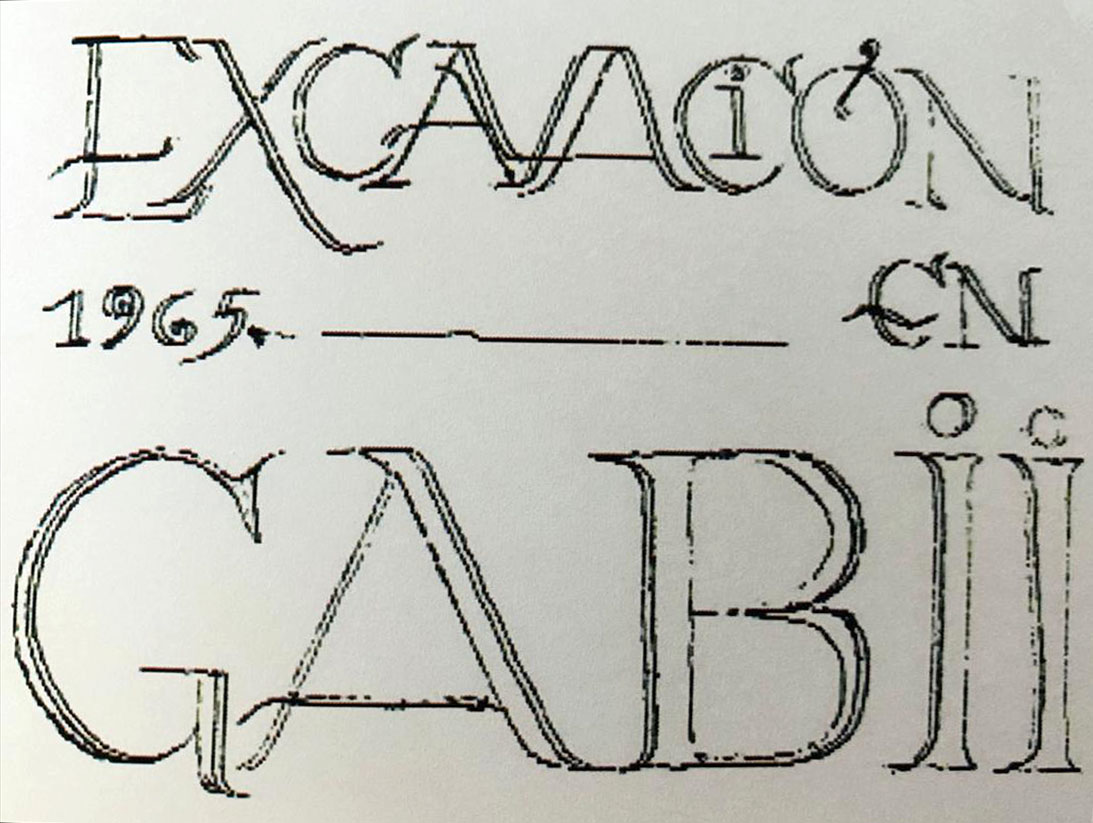 EXCAVACIÓN
1965. — EN
GABii